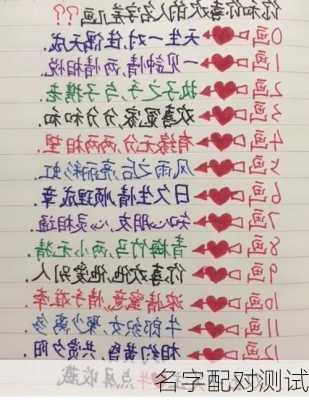 你和你喜欢的人名字差几画??
0画 天生一对,佳偶天成.
1画 一见钟情,两情相悦.
2画 执子之手,与子携老.
3画 欢喜冤家,分分和和.
4画 有缘无分,两两相望.
5画 风雨之后,亮丽彩虹.
6画 日久生情,顺理成章.
7画 知心朋友,心灵相通.
8画 青梅竹马,两小无猜.
9画 你喜欢他,他爱别人
10画 浓情蜜意,情字难牵
11画 牛郎织女,聚少离多
12画 相约黄昏,共赏夕阳
点屏收藏
名字配对测试